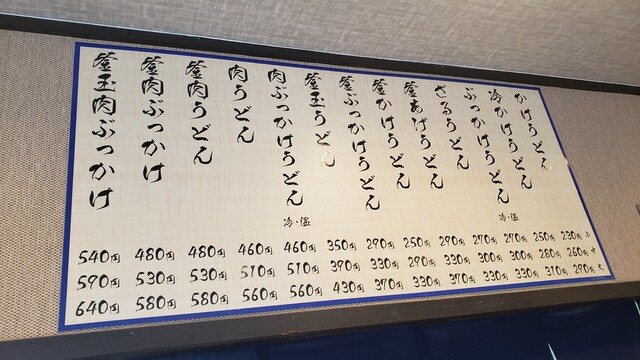 かけうどん
冷かけうどん
ぶっかけうどん
冷・温
ざるうどん
釜あげうどん
釜かけうどん
釜ぶっかけうどん
釜玉うどん
肉ぶっかけうどん
冷・温
肉うどん
釜肉うどん
釜肉ぶっかけ
釜玉肉ぶっかけ
540円 480円 480円 460円 460円 350円 290円 250円 290円 270円 270円 250円 230円 小
590円 530円 530円 510円 510円 390円 330円 290円 330円 300円 300円 280円 260円 中
640円 580円 580円 560円 560円 430円 370円 330円 370円 330円 330円 310円 290円 大